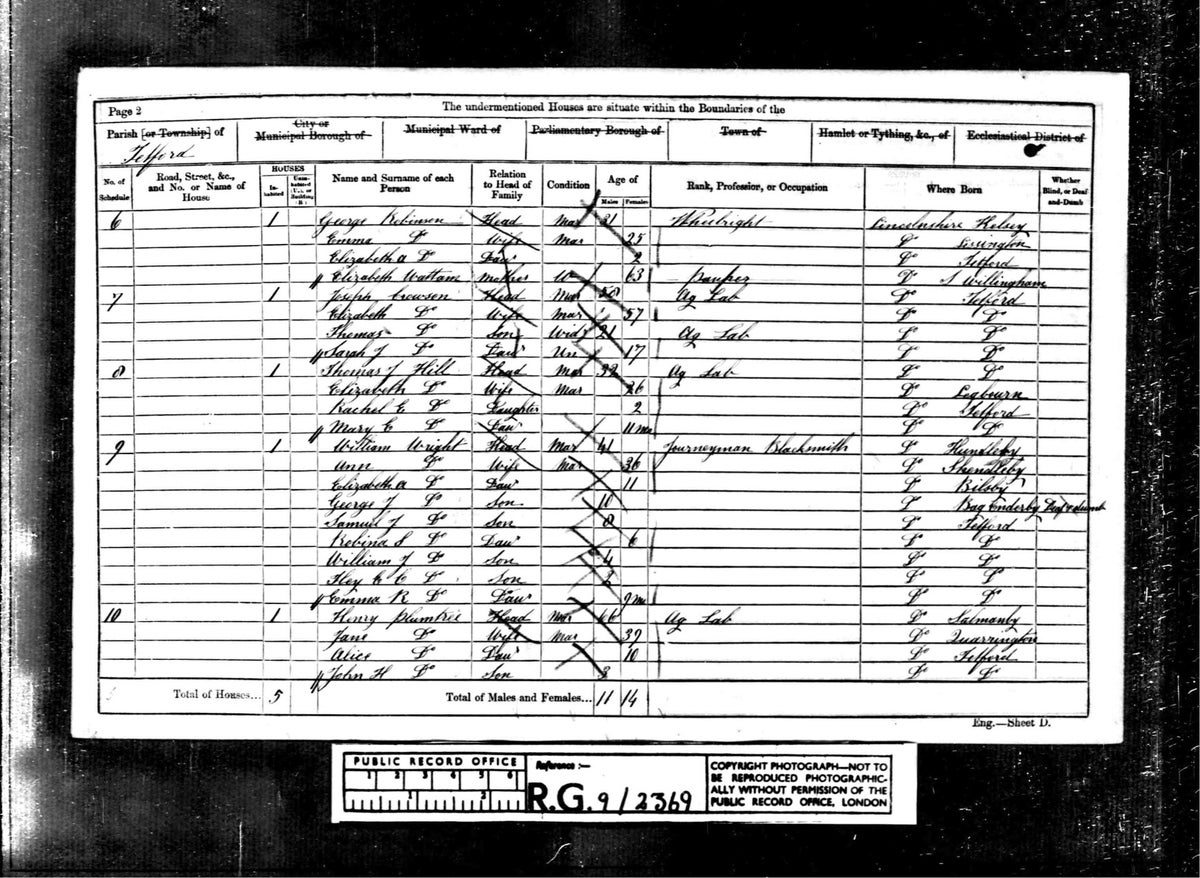 Page 2
The undermentioned Houses are situate within the Boundaries of the
Parish [or Township] of
City or Municipal Borough of
Municipal Ward of
Parliamentary Borough of
Town of
Hamlet or Tything, &c., of
Ecclesiastical District of
Tetford
No. of Schedule
Road, Street, &c., and No. or Name of House
HOUSES
In-habited
Name and Surname of each Person
Relation to Head of Family
Condition
Age of
Males
Females
Rank, Profession, or Occupation
Where Born
Whether Blind, or Deaf-and-Dumb
6 1 George Robinson Head Mar 31 Wheelright Lincolnshire Helsey
Emma Do Wife Mar 25 Do
Elizabeth A Do Daur 2 Do Tetford
Elizabeth Wattam Mother W 63 Pauper Do S Willingham
7 1 Joseph Crowson Head Mar Ag Lab Do Tetford
Elizabeth Do Wife Mar 57 Do Do
Thomas Do Son Widr 21 Ag Lab Do Do
Sarah J Do Daur Un 17 Do Do
8 1 Thomas J Hill Head Mar 32 Ag Lab Do Do
Elizabeth Do Wife Mar 26 Do Legbourn
Rachel E Do Daughter 2 Do Tetford
Mary E Do Daur 11 mo Do Do
9 1 William Wright Head Mar 41 Journeyman Blacksmith Do Hundleby
Ann Do Wife Mar 36 Do Skendleby
Elizabeth A Do Daur 11 Do Bilsby
George J Do Son 10 Do Bag Enderby Deaf & dumb
Samuel J Do Son 8 Do Tetford
Robina S Do Daur 6 Do Do
William J Do Son 4 Do Do
Do Son 2 Do Do
Emma R Do Daur 9 mo Do Do
10 1 Henry Plumtree Head Mar 66 Ag Lab Do Salmanby
Jane Do Wife Mar 39 Do Quarrington
Alice Do Daur 10 Do Tetford
John H Do Son 3 Do Do
Total of Houses... 5 Total of Males and Females... 11 14
Eng.—Sheet D.
PUBLIC RECORD OFFICE
1 2 3 4 5 6
1 2
Reference :—
R.G. 9/2369
COPYRIGHT PHOTOGRAPH—NOT TO
BE REPRODUCED PHOTOGRAPHIC-
ALLY WITHOUT PERMISSION OF THE
PUBLIC RECORD OFFICE, LONDON